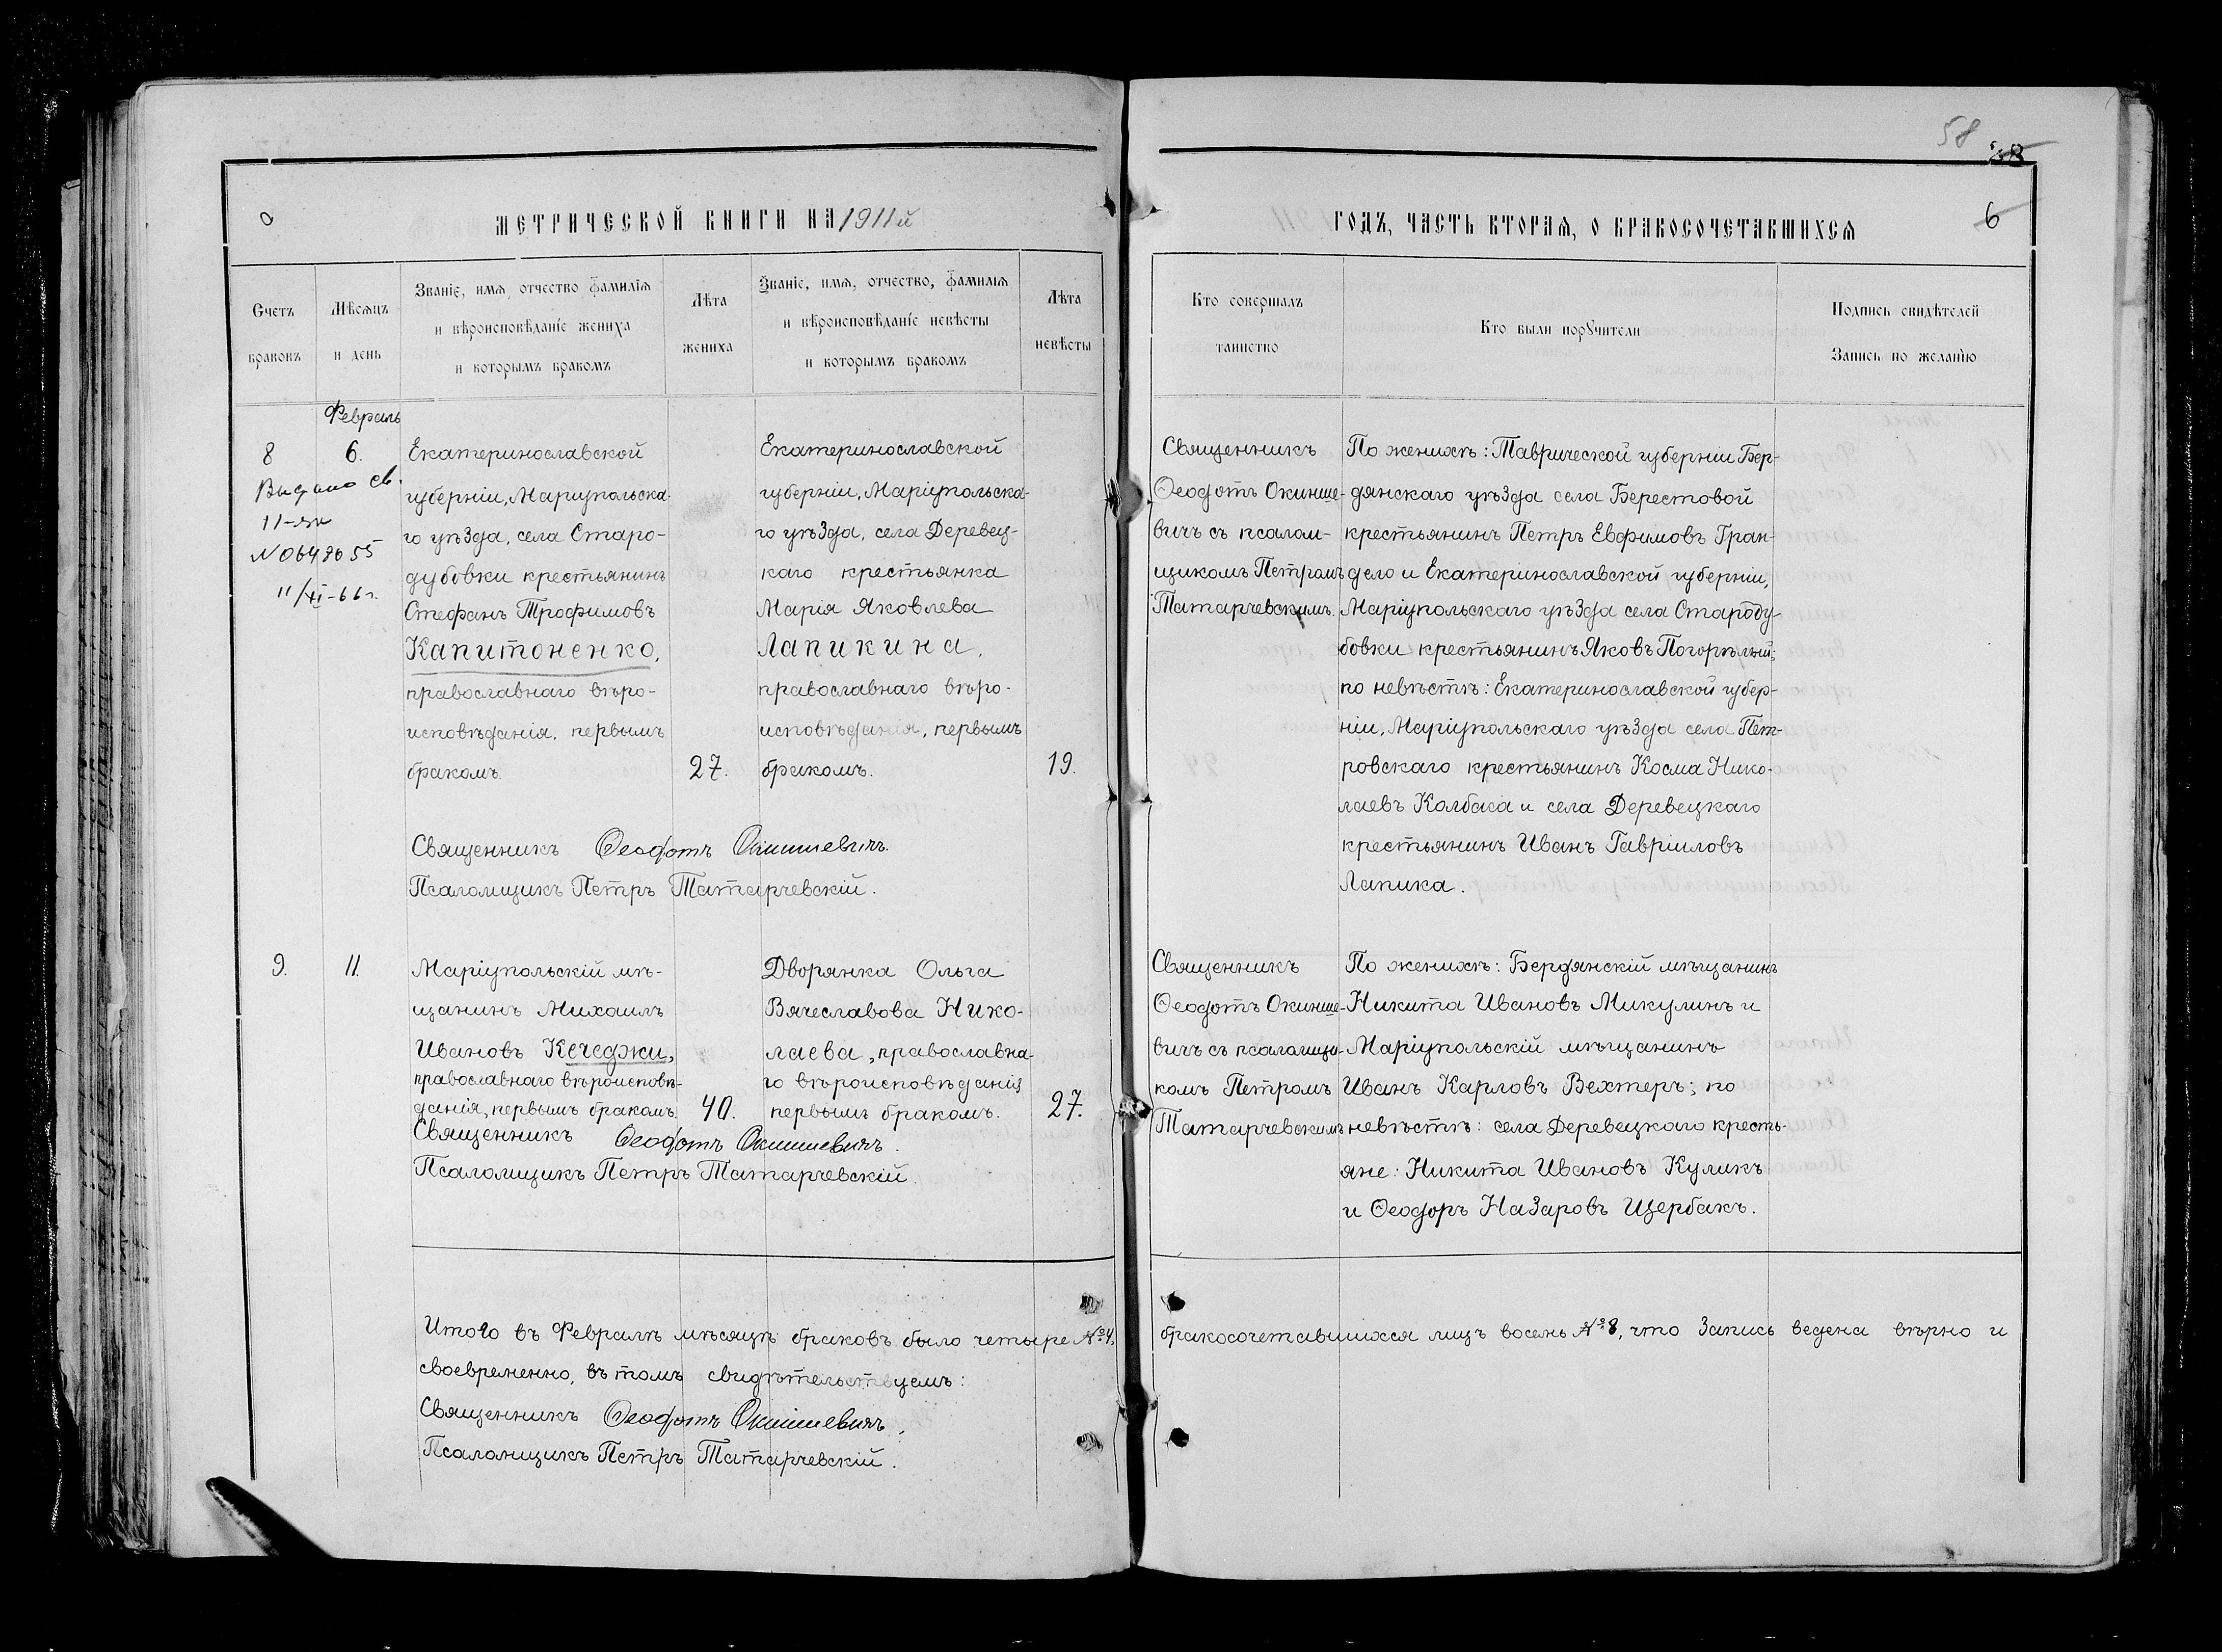 58
38
МЕТРИЧЕСКОЙ КНИГИ НА 1911й
ГОДЪ, ЧАСТЬ ВТОРАЯ, О БРАКОСОЧЕТАВШИХСЯ
6
Счетъ
браковъ
Мѣсяцъ
и день
Званіе, имя, отчество фамилія
и вѣроисповѣданіе жениха
и которымъ бракомъ
Лѣта
жениха
Званіе, имя, отчество, фамилія
и вѣроисповѣданіе невѣсты
и которымъ бракомъ
Лѣта
невѣсты
Кто совершалъ
таинство
Кто были поручители
Подпись свидѣтелей
Запись по желанію
Февраль
8
6.
Выдано св.
11-
N 0648055
11/XI-66г.
Екатеринославской
губерніи, Маріупольска-
го уѣзда, села Старо-
дубовки крестьянинъ
Стефанъ Трофимовъ
Капитоненко,
православнаго вѣро-
исповѣданія, первымъ
бракомъ.
27.
Екатеринославской
губерніи, Маріупольска-
го уѣзда, села Деревец-
каго крестьянка
Марія Яковлева
Лапикина,
православнаго вѣро-
исповѣданія, первымъ
бракомъ.
19.
Священникъ Ѳеодотъ Окиншевичъ.
Псаломщикъ Петръ Татарчевскій.
Священникъ
Ѳеодотъ Окинше-
вичъ съ псалом-
щикомъ Петромъ
Татарчевскимъ.
По женихѣ: Таврической губерніи Бер-
дянскаго уѣзда села Берестовой
крестьянинъ Петръ Евфимовъ Гран-
дело и Екатеринославской губерніи,
Маріупольскаго уѣзда села Староду-
бовки крестьянинъ Яковъ Погорѣлый;
по невѣстѣ: Екатеринославской губер-
ніи, Маріупольскаго уѣзда села Пет-
ровскаго крестьянинъ Косма Нико-
лаевъ Колбаса и села Деревецкаго
крестьянинъ Иванъ Гавріиловъ
Лапика.
9.
11.
Маріупольскій мѣ-
щанинъ Михаилъ
Ивановъ Кечеджи,
православнаго вѣроисповѣ-
данія, первымъ бракомъ.
40.
Дворянка Ольга
Вячеславова Нико-
лаева, православна-
го вѣроисповѣданія
первымъ бракомъ.
27.
Священникъ Ѳеодотъ Окиншевичъ.
Псаломщикъ Петръ Татарчевскій.
Священникъ
Ѳеодотъ Окинше-
вичъ съ псаломщи-
комъ Петромъ
Татарчевскимъ
По женихѣ: Бердянскій мѣщанинъ
Никита Ивановъ Микулинъ и
Маріупольскій мѣщанинъ
Иванъ Карловъ Вехтеръ; по
невѣстѣ: села Деревецкаго кресть-
яне: Никита Ивановъ Куликъ
и Ѳеодоръ Назаровъ Щербакъ.
Итого въ Февралѣ мѣсяцѣ браковъ было четыре №4, бракосочетавшихся лицъ восемь №8, что запись ведена вѣрно и
своевременно, въ томъ свидѣтельствуемъ:
Священникъ Ѳеодотъ Окиншевичъ,
Псаломщикъ Петръ Татарчевскій.